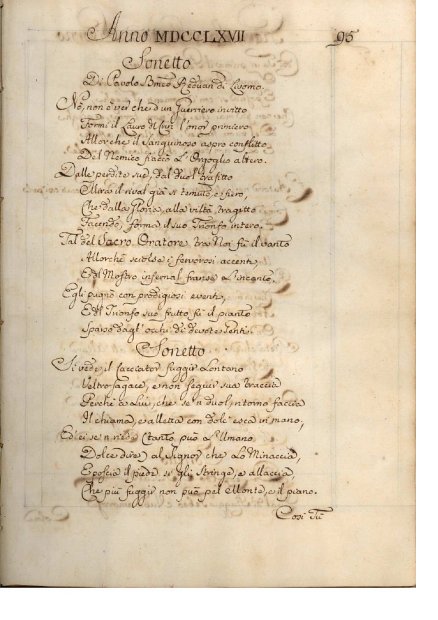 Anno MDCCLXVII
95
Sonetto
Di Pavolo di Livorno.
Nò, non è ver che d'un Guerriero invitto
Formi il Lauro di Crin l'onor primiero
Allor che il sanguinoso aspro conflitto
Del Nemico fiaccò L'Orgoglio altero.
Dalle perdite sue, dal duol trafitto
il rival già sì temuto, e fiero,
Che dalla Gloria, alla viltà tragitto
Facendo, forma il suo Trionfo intero.
Tal del Sacro Oratore tra Noi fù il vanto
Allorchè sciolse i fervorosi accenti,
E del Mostro infernal franse L'incanto.
Egli pugnò con prodigiosi eventi,
E del Trionfo suo frutto fù il pianto
Sparso dagl'occhi di devote Genti.
Sonetto
Si vede il Cacciator fuggir Lontano
Veltro sagace, e non seguir sua traccia
Perchè a Lui, che se n duol, ritorno faccia
Il chiama, e alletta con dolc'esca in mano,
Ed ei se n (tanto può L'Umano
Dolce dire) al Signor che Lo Minaccia,
E poscia il piede ei gli stringe, e allaccia
Che più fuggir non può pel Monte, e il piano.
Così Tù